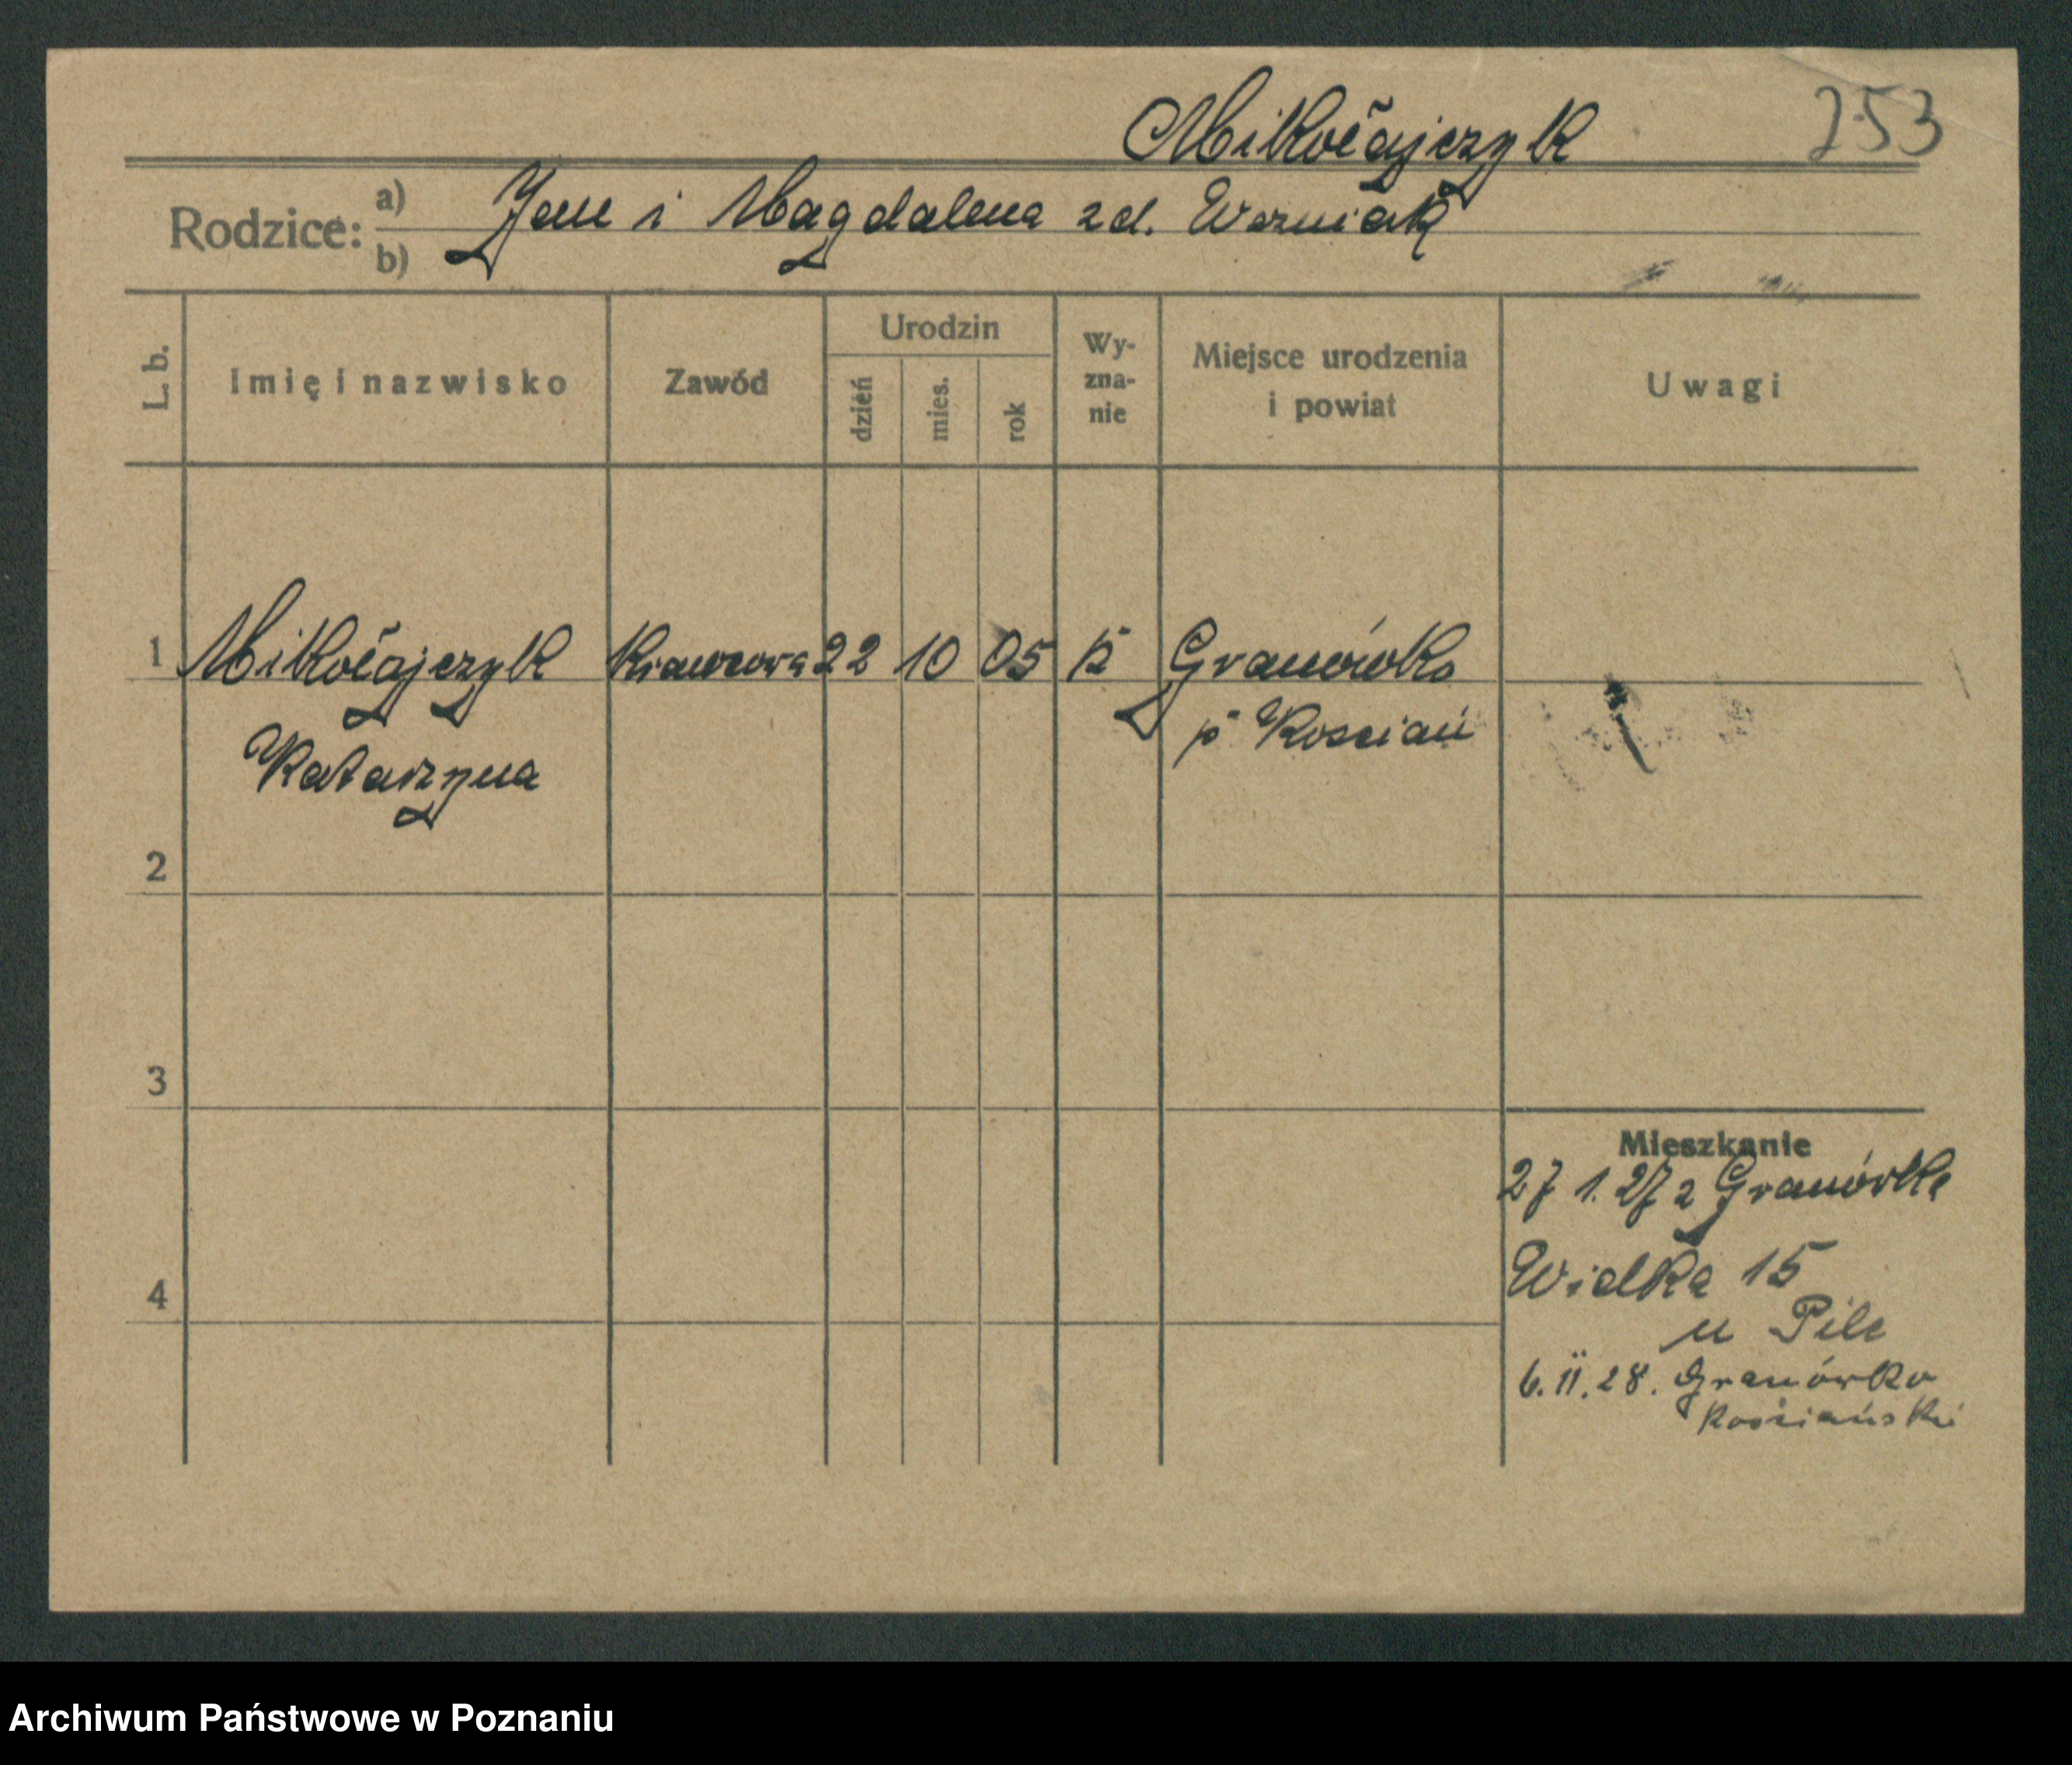 Mikołajczyk
253
Rodzice: a) Jan i Magdalena zd. Wozniak
b)
L. b.
Imię i nazwisko
Zawód
Urodzin
dzień
mies.
rok
Wy-
zna-
nie
Miejsce urodzenia
i powiat
Uwagi
1 Mikołajczyk Krawcowa 22 10 05 k Granówko
p Kościań
Katarzyna
2
3
Mieszkanie
27 1. 27 z Granówka
Wielka 15
4
u Pilc
6. II. 28. Granówko
Kościański
Archiwum Państwowe w Poznaniu